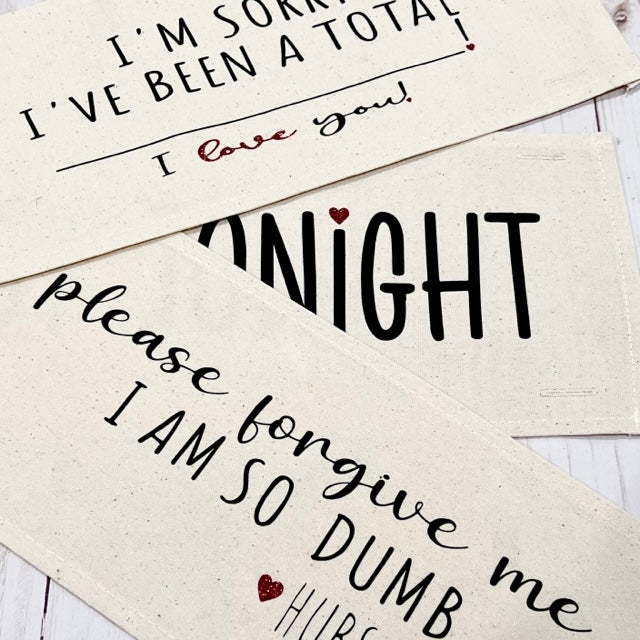 I'M SORRY
I'VE BEEN A TOTAL
!
I love you!
ONIGHT
please forgive me
I AM SO DUMB
HUBS